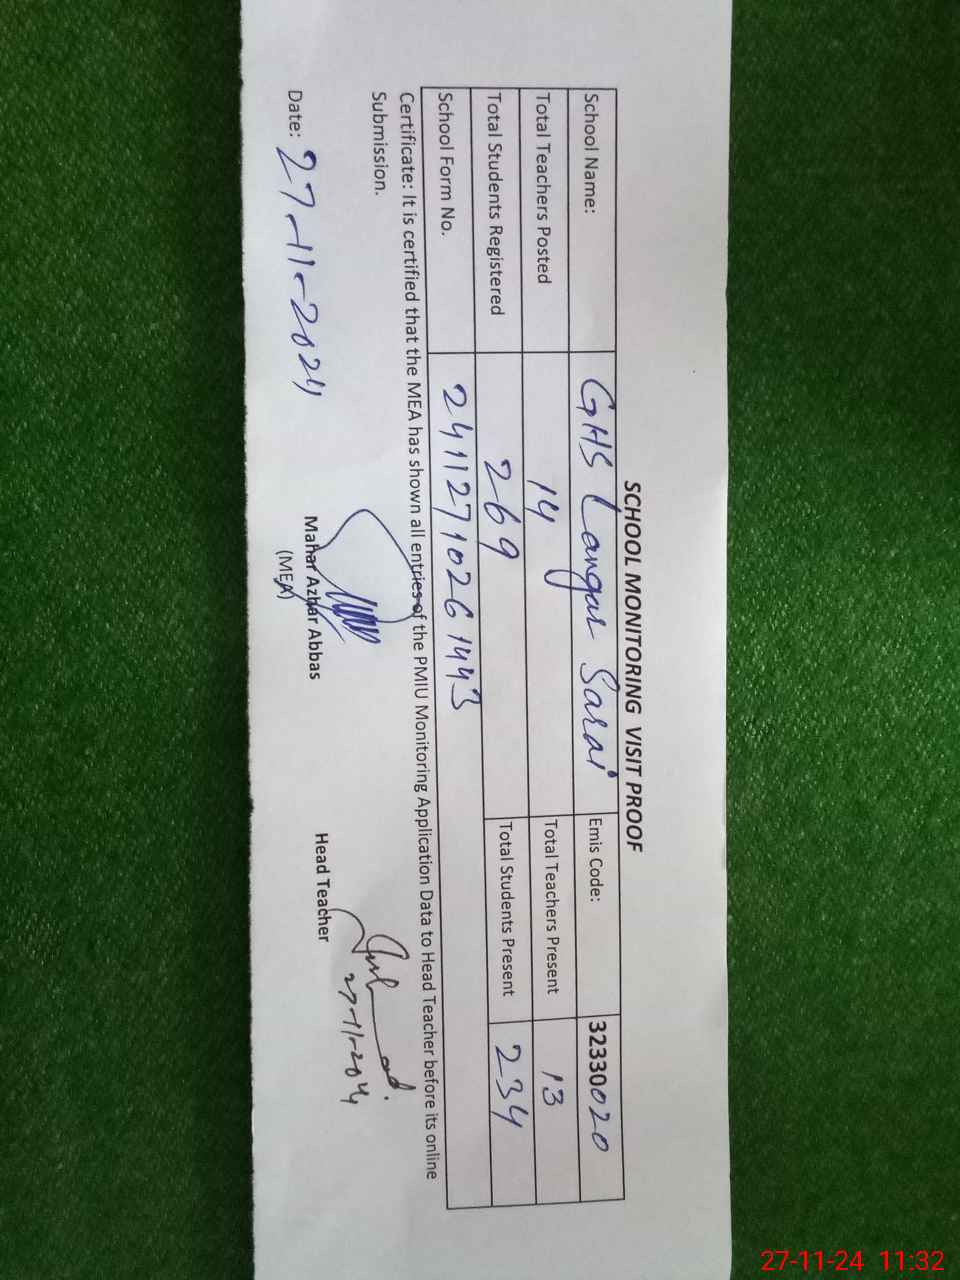 SCHOOL MONITORING VISIT PROOF
School Name: GHS Langar Sarai Emis Code: 32330020
Total Teachers Posted 14 Total Teachers Present 13
Total Students Registered 269 Total Students Present 234
School Form No. 24112710261443
Certificate: It is certified that the MEA has shown all entries of the PMIU Monitoring Application Data to Head Teacher before its online
Submission.
27-11-2024
Date: 27-11-2024
Mahar Azhar Abbas Head Teacher
(MEA)
27-11-24 11:32